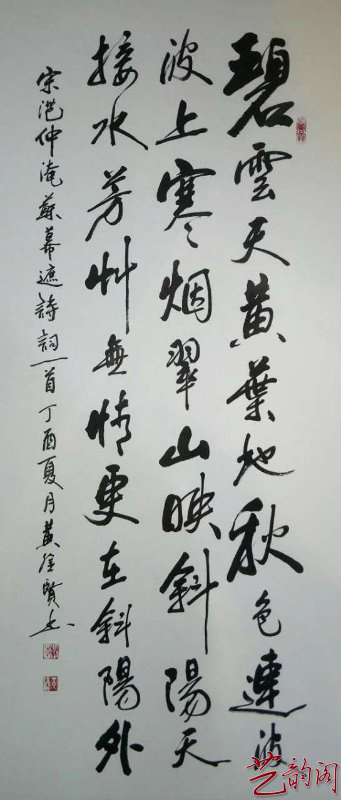 碧雲天黄葉地秋色連波
波上寒烟翠山映斜陽天
接水芳艸無情更在斜陽外
宋范仲淹蘇幕遮詩詞一首丁酉夏月黄賢书
艺韵阁